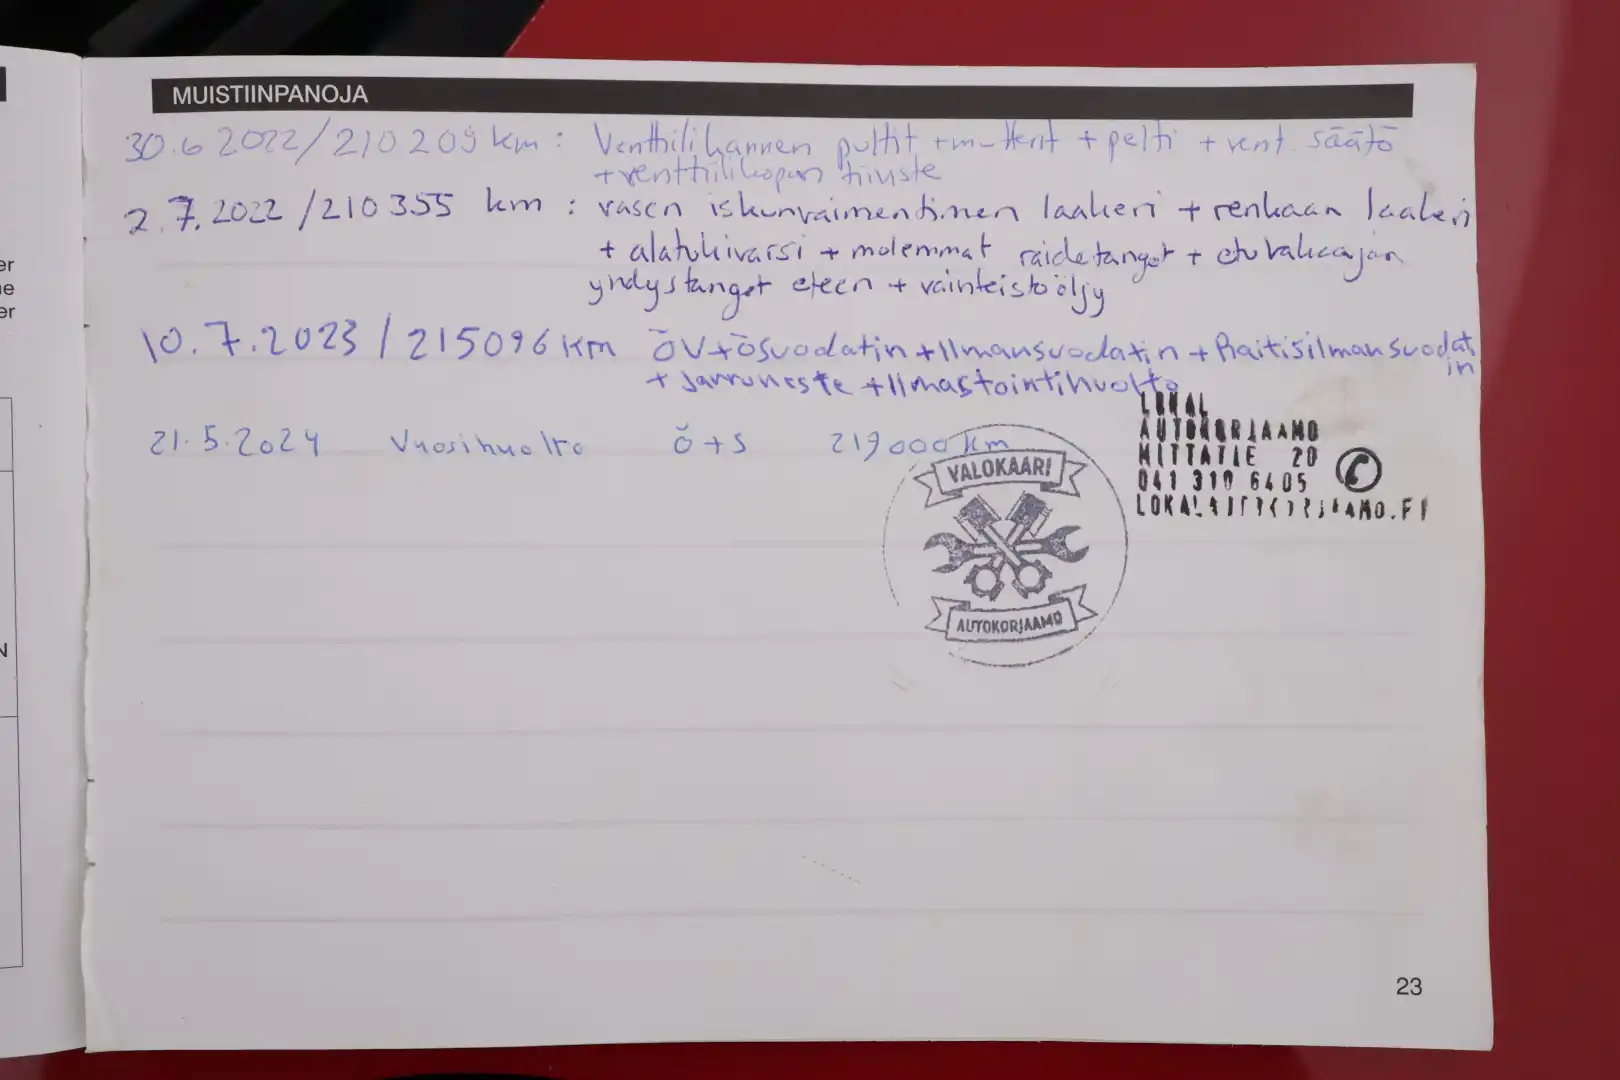 er
e
er
N
MUISTIINPANOJA
30.6 2022/210209 km: Venttilikannen pultit + mutterit + pelti + vent. säätö
+ venttiilikopan tiiviste
2.7.2022/210355 km: vasen iskunvaimentimen laakeri + renkaan laakeri
+ alatukivarsi + molemmat raidetangot + etuvakaajan
yhdystangot eteen + vainteistoöljy
10.7.2023/215096 km ÖV+ösuodatin+Ilmansuodatin+Raitisilmansuodat
in
+ Jarruneste + Ilmastointihuolto
LOKAL
AUTOKORJAAMO
MITTATIE 20
041 310 6405
21.5.2024 Vuosihuolto Ö+S 219000 km
VALOKAARI
AUTOKORJAAMO
23